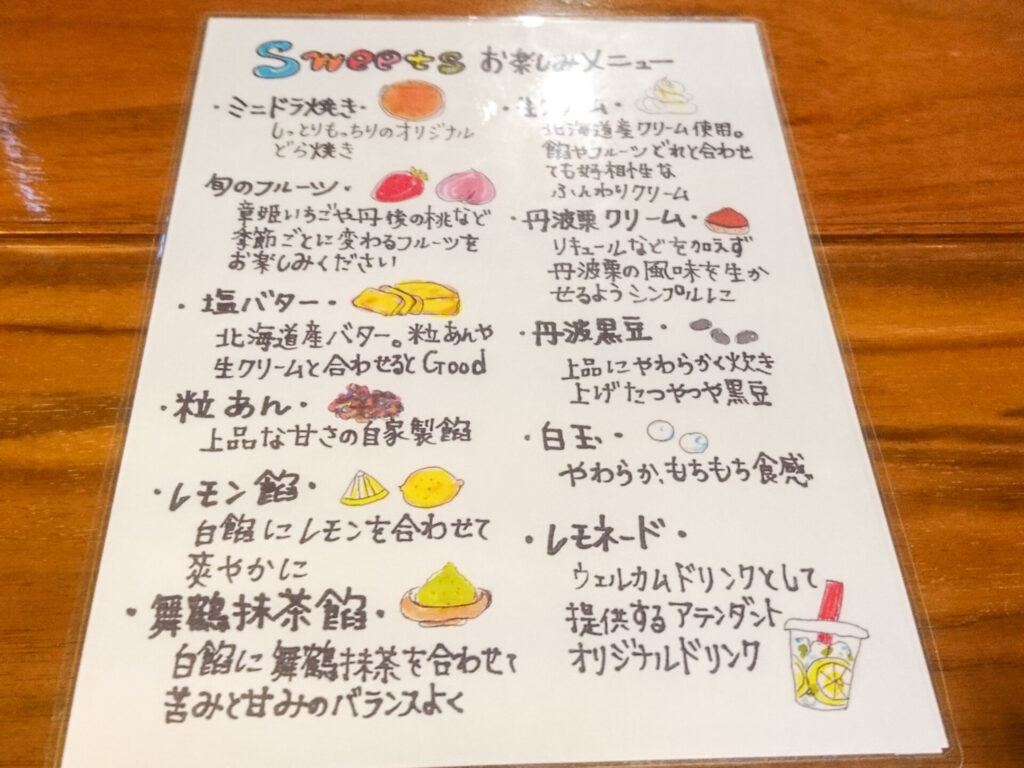 Sweets お楽しみメニュー
・ミニドラ焼き・
しっとりもっちりのオリジナル
どら焼き
旬のフルーツ・
章姫いちごや丹後の桃など
季節ごとに変わるフルーツを
お楽しみください
・塩バター・
北海道産バター。粒あんや
生クリームと合わせるとGood
・粒あん・
上品な甘さの自家製餡
・レモン餡・
白餡にレモンを合わせて
爽やかに
・舞鶴抹茶餡・
白餡に舞鶴抹茶を合わせて
苦みと甘みのバランスよく
・生クリーム・
北海道産クリーム使用。
餡やフルーツどれと合わせ
ても好相性な
ふんわりクリーム
・丹波栗クリーム・
リキュールなどを加えず
丹波栗の風味を生か
せるようシンプルに
・丹波黒豆・
上品にやわらかく炊き
上げたつやつや黒豆
・白玉・
やわらか、もちもち食感
・レモネード・
ウェルカムドリンクとして
提供するアテンダント
オリジナルドリンク